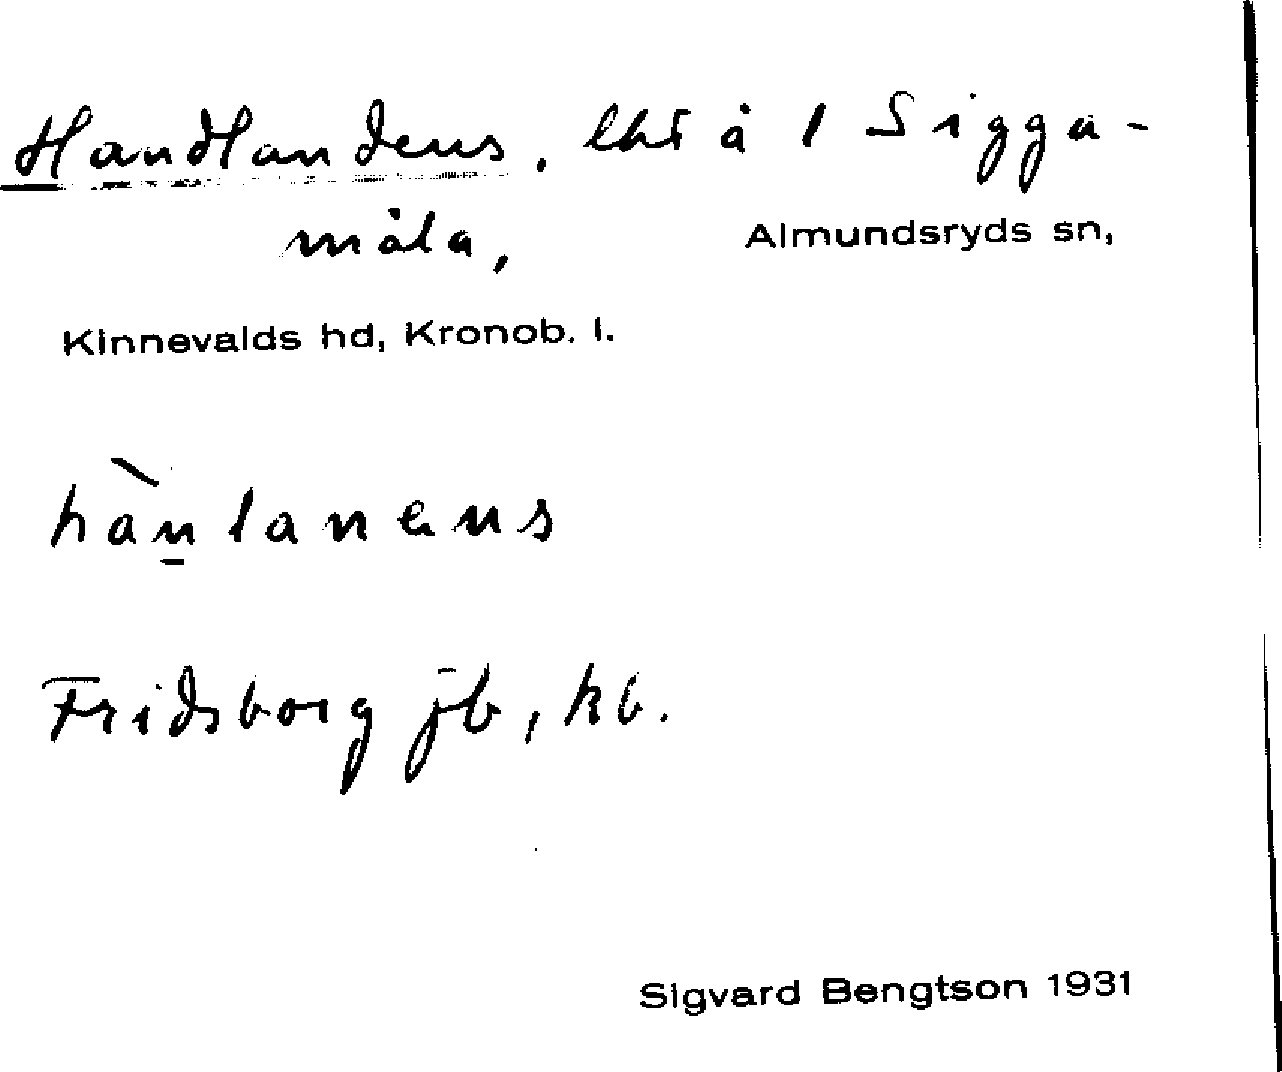 Handlandens, lht å 1 Sigga-
måla, Almundsryds sn,
Kinnevalds hd, Kronob. l.
hàn̲lanens
Fridsborg jb, kb.
Sigvard Bengtson 1931